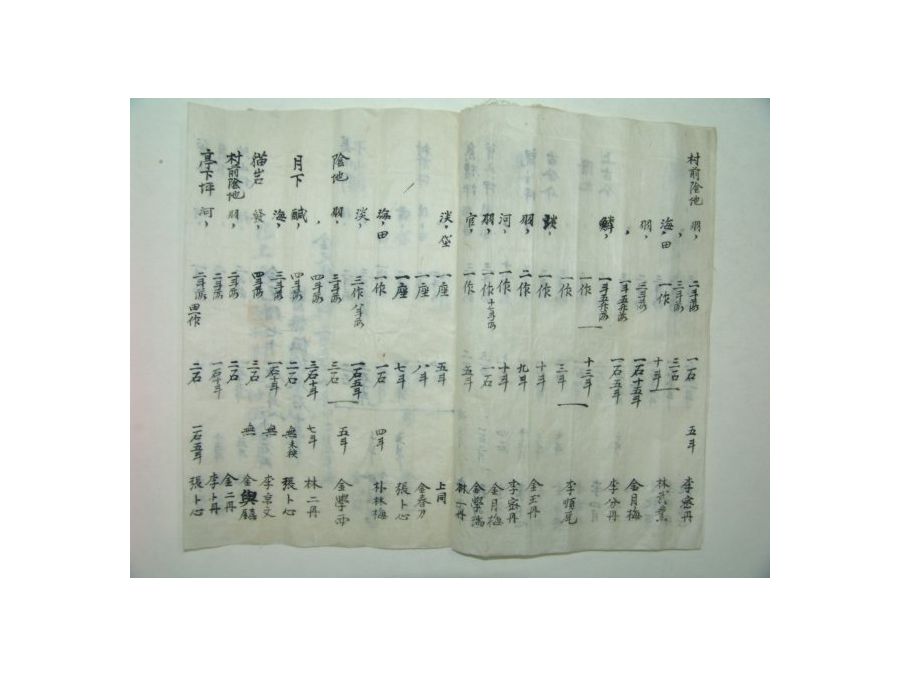 村前陰地 羽, 二斗落 一石 五斗 李宗丹
, 三斗落 二石
海, 田 一作 十斗 林武業
羽, 三斗落 一石十五斗 金月梅
, 一斗五升落 一石五斗 李分丹
鱗, 一斗五升落
一作 十三斗 李順尾
一作 三斗
淡, 一作 十斗
羽, 二作 九斗 金玉丹
河, 一作 十斗 李宗丹
羽, 一作 十七斗落 一石 金月梅
官, 一作 五斗 金學瑞
林一丹
淡, 垈 一座 五斗 上同
一座 八斗 金春乃
一座 七斗 張卜心
海, 田 一作 一石 四斗 朴林梅
淡, 三作 八斗落 一石五斗
陰地 羽, 三斗落 三石 五斗 金學西
, 四斗落 三石十斗 七斗 林二丹
月下 鹹, 四斗落 二石 無末秧 張卜心
海, 三斗落 一石十斗 無 李京文
猫岩 發, 四斗落 三石 無 金興
村前陰地 羽, 二斗落 二石 金二丹
二斗落 一石十斗 李卜丹
亭下坪 河, 二斗落 田一作 二石 一石五斗 張卜心